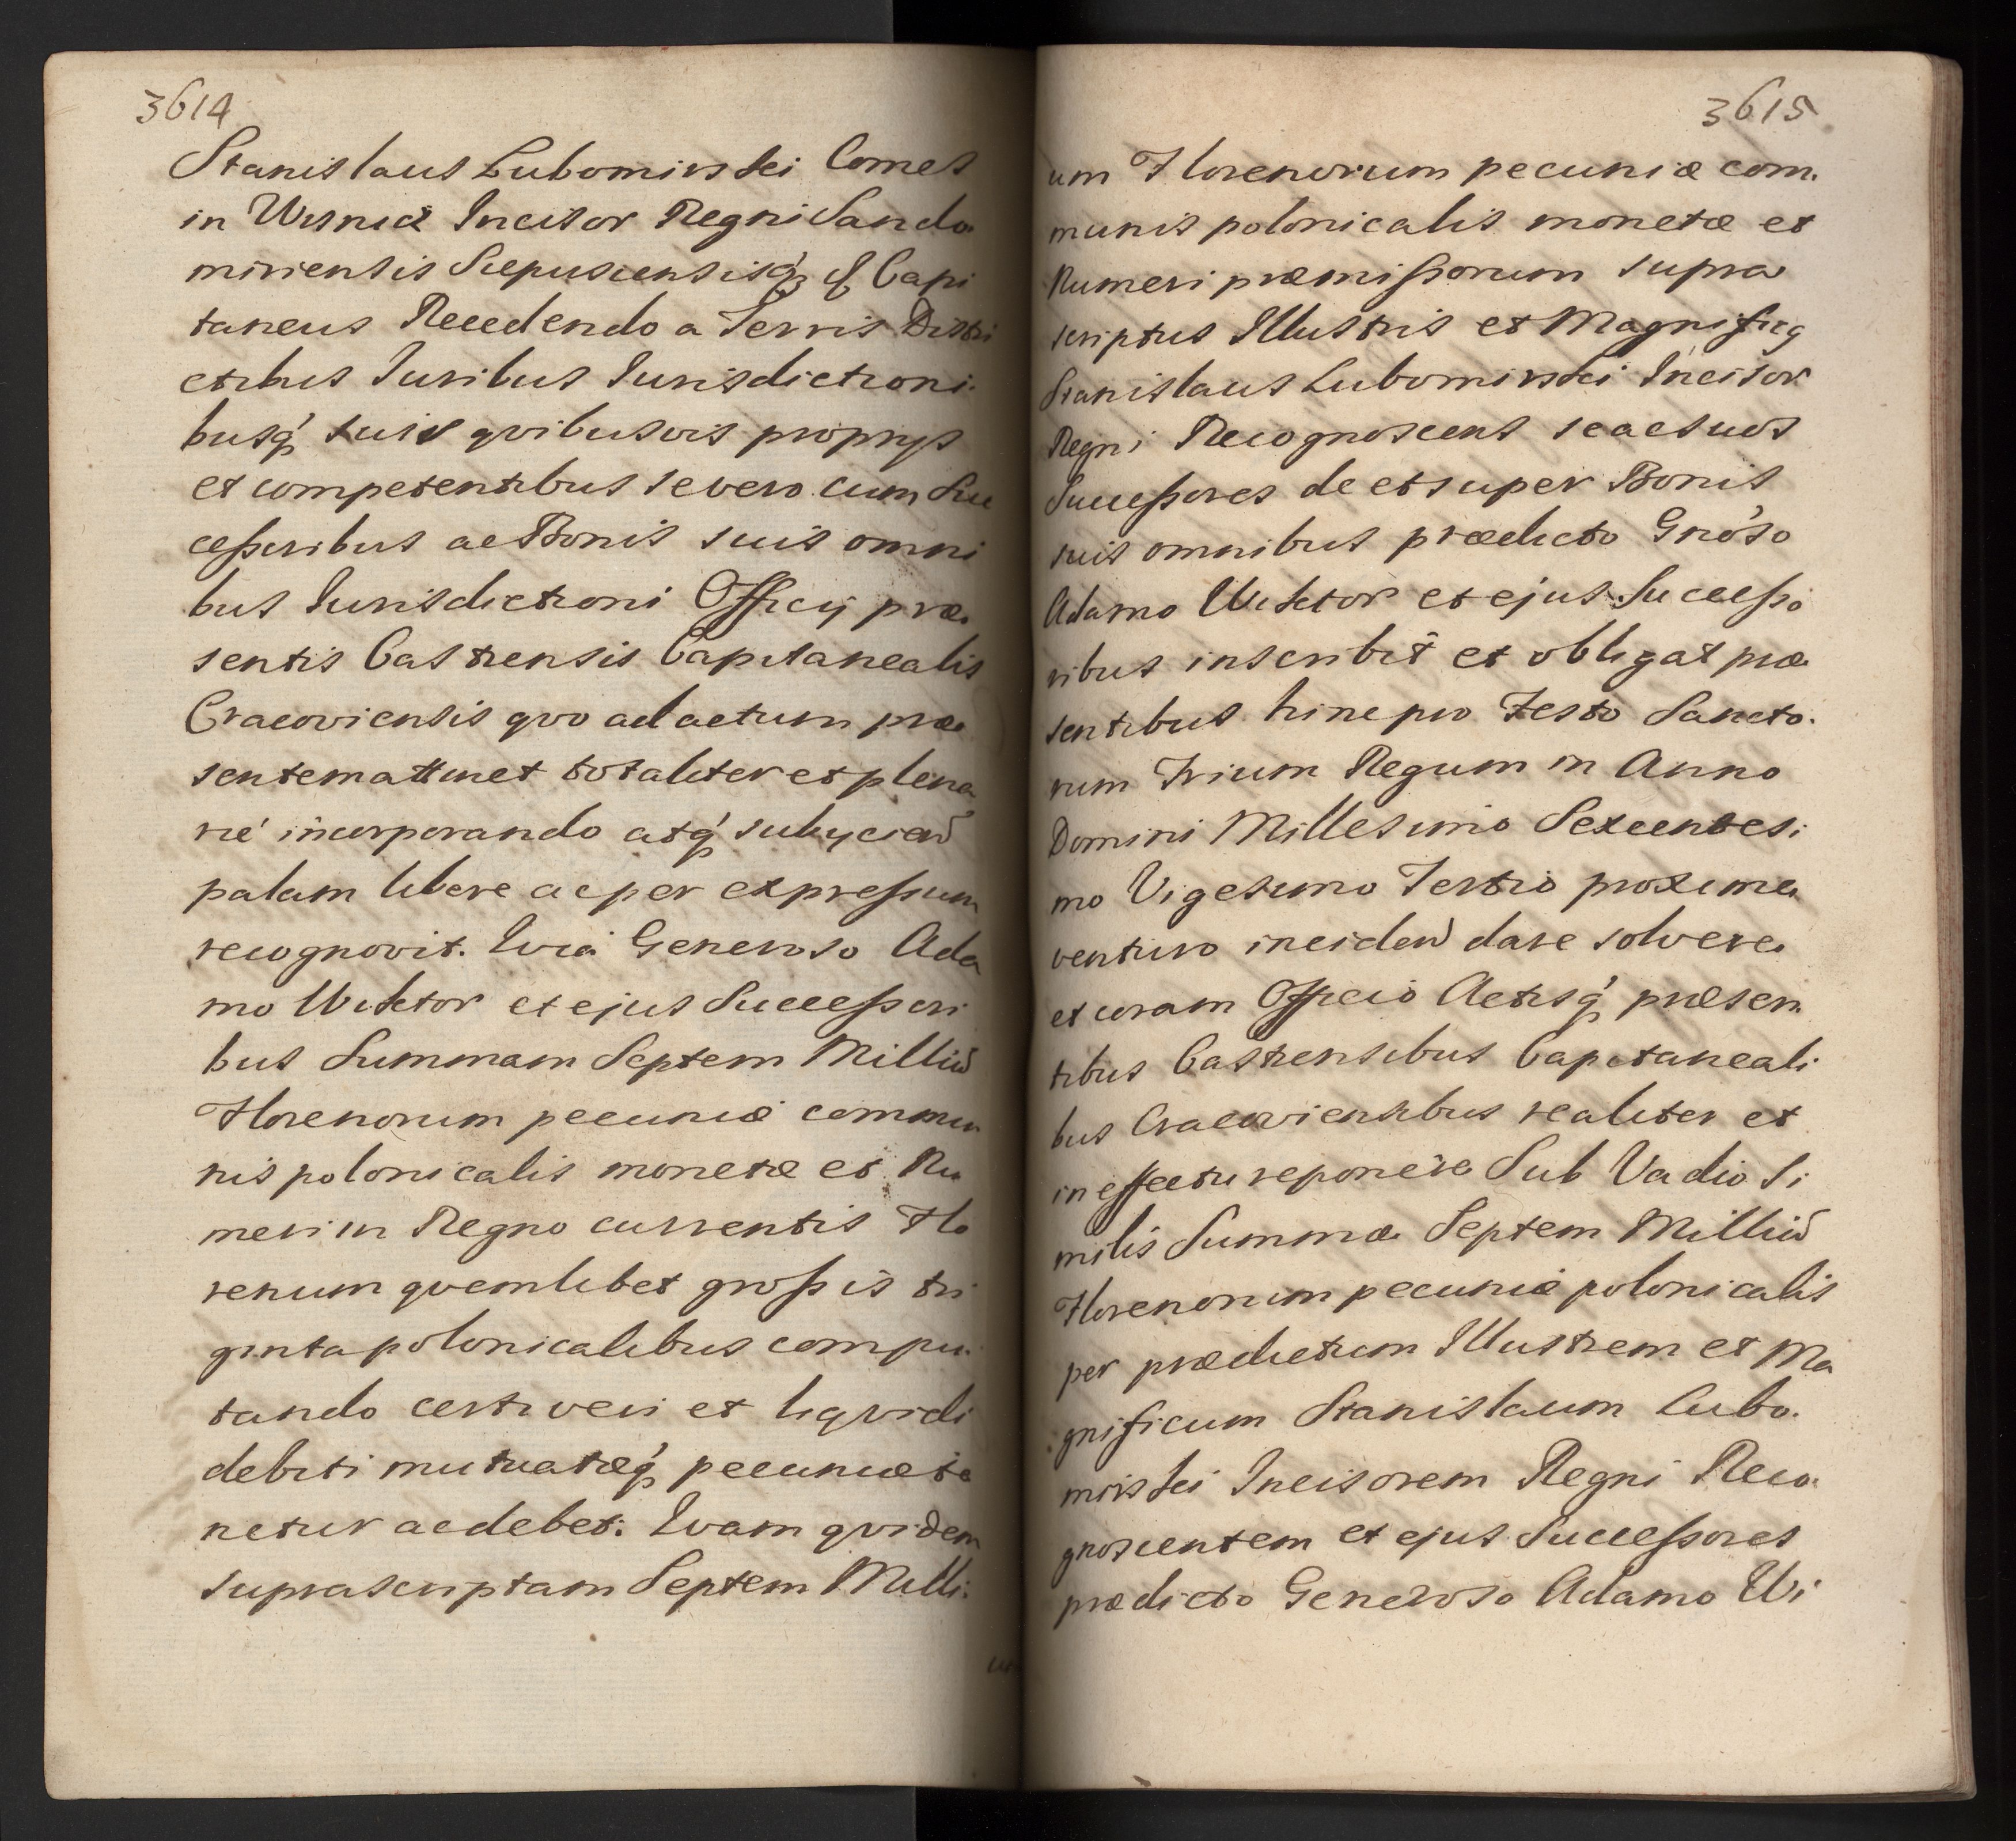 3614
Stanislaus Lubomirski Comes
in Wisnicz Incisor Regni Sando
miriensis Scepusiensisq́ß & Capi
taneus Recedendo a Terris Distri
ctibus Iuribus Iurisdictioni.
busq́ suis qvibusvis proprys
et competentibus se vero cum Suc
cessoribus ac Bonis suis omni
bus Iurisdictioni Officij præ
sentis Castrensis Capitanealis
Cracoviensis qvo ad actum præ
sentem attinet totaliter et plena
rie incorporando atq́ subyciend
palam libere ac per expressum
recognovit. Qvia Generoso Ada
mo Wiktor et ejus Successori
bus Summam Septem Milliu
Florenorum pecuniæ commu
nis polonicalis monetæ et Nu
meri in Regno currentis Flo
renum qvemlibet grossis tri
ginta polonicalibus compu.
tando certi veri et liqvidi
debiti mutuatæq́ pecuniæ te
netur ac debet. Qvam qvidem
suprascriptam Septem Milli.
3615
um Florenorum pecuniæ com.
munis polonicalis monetæ et
Numeri præmissorum supra
scriptus Illustris et Magnificq
Stanislaus Lubomirski Incisor
Regni Recognoscens se ac suos
Successores de et super Bonis
suis omnibus prædicto Gnoso
Adamo Wiktor et ejus Successo
ribus inscribit et obligat præ
sentibus hinc pro Festo Sancto.
rum Trium Regum in Anno
Domini Millesimo Sexcentesi
mo Vigesimo Tertio proxime
venturo inciden dare solvere
et coram Officio Actisq́ præsen
tibus Castrensibus Capitaneali
bus Cracoviensibus realiter et
in effectu reponere Sub Vadio Si
milis Summæ Septem Milliu
Florenorum pecuniæ polonicalis
per prædictum Illustrem et Ma
gnificum Stanislaum Lubo.
mirski Incisorem Regni Reco
gnoscentem et ejus Successores
prædicto Generoso Adamo Wi